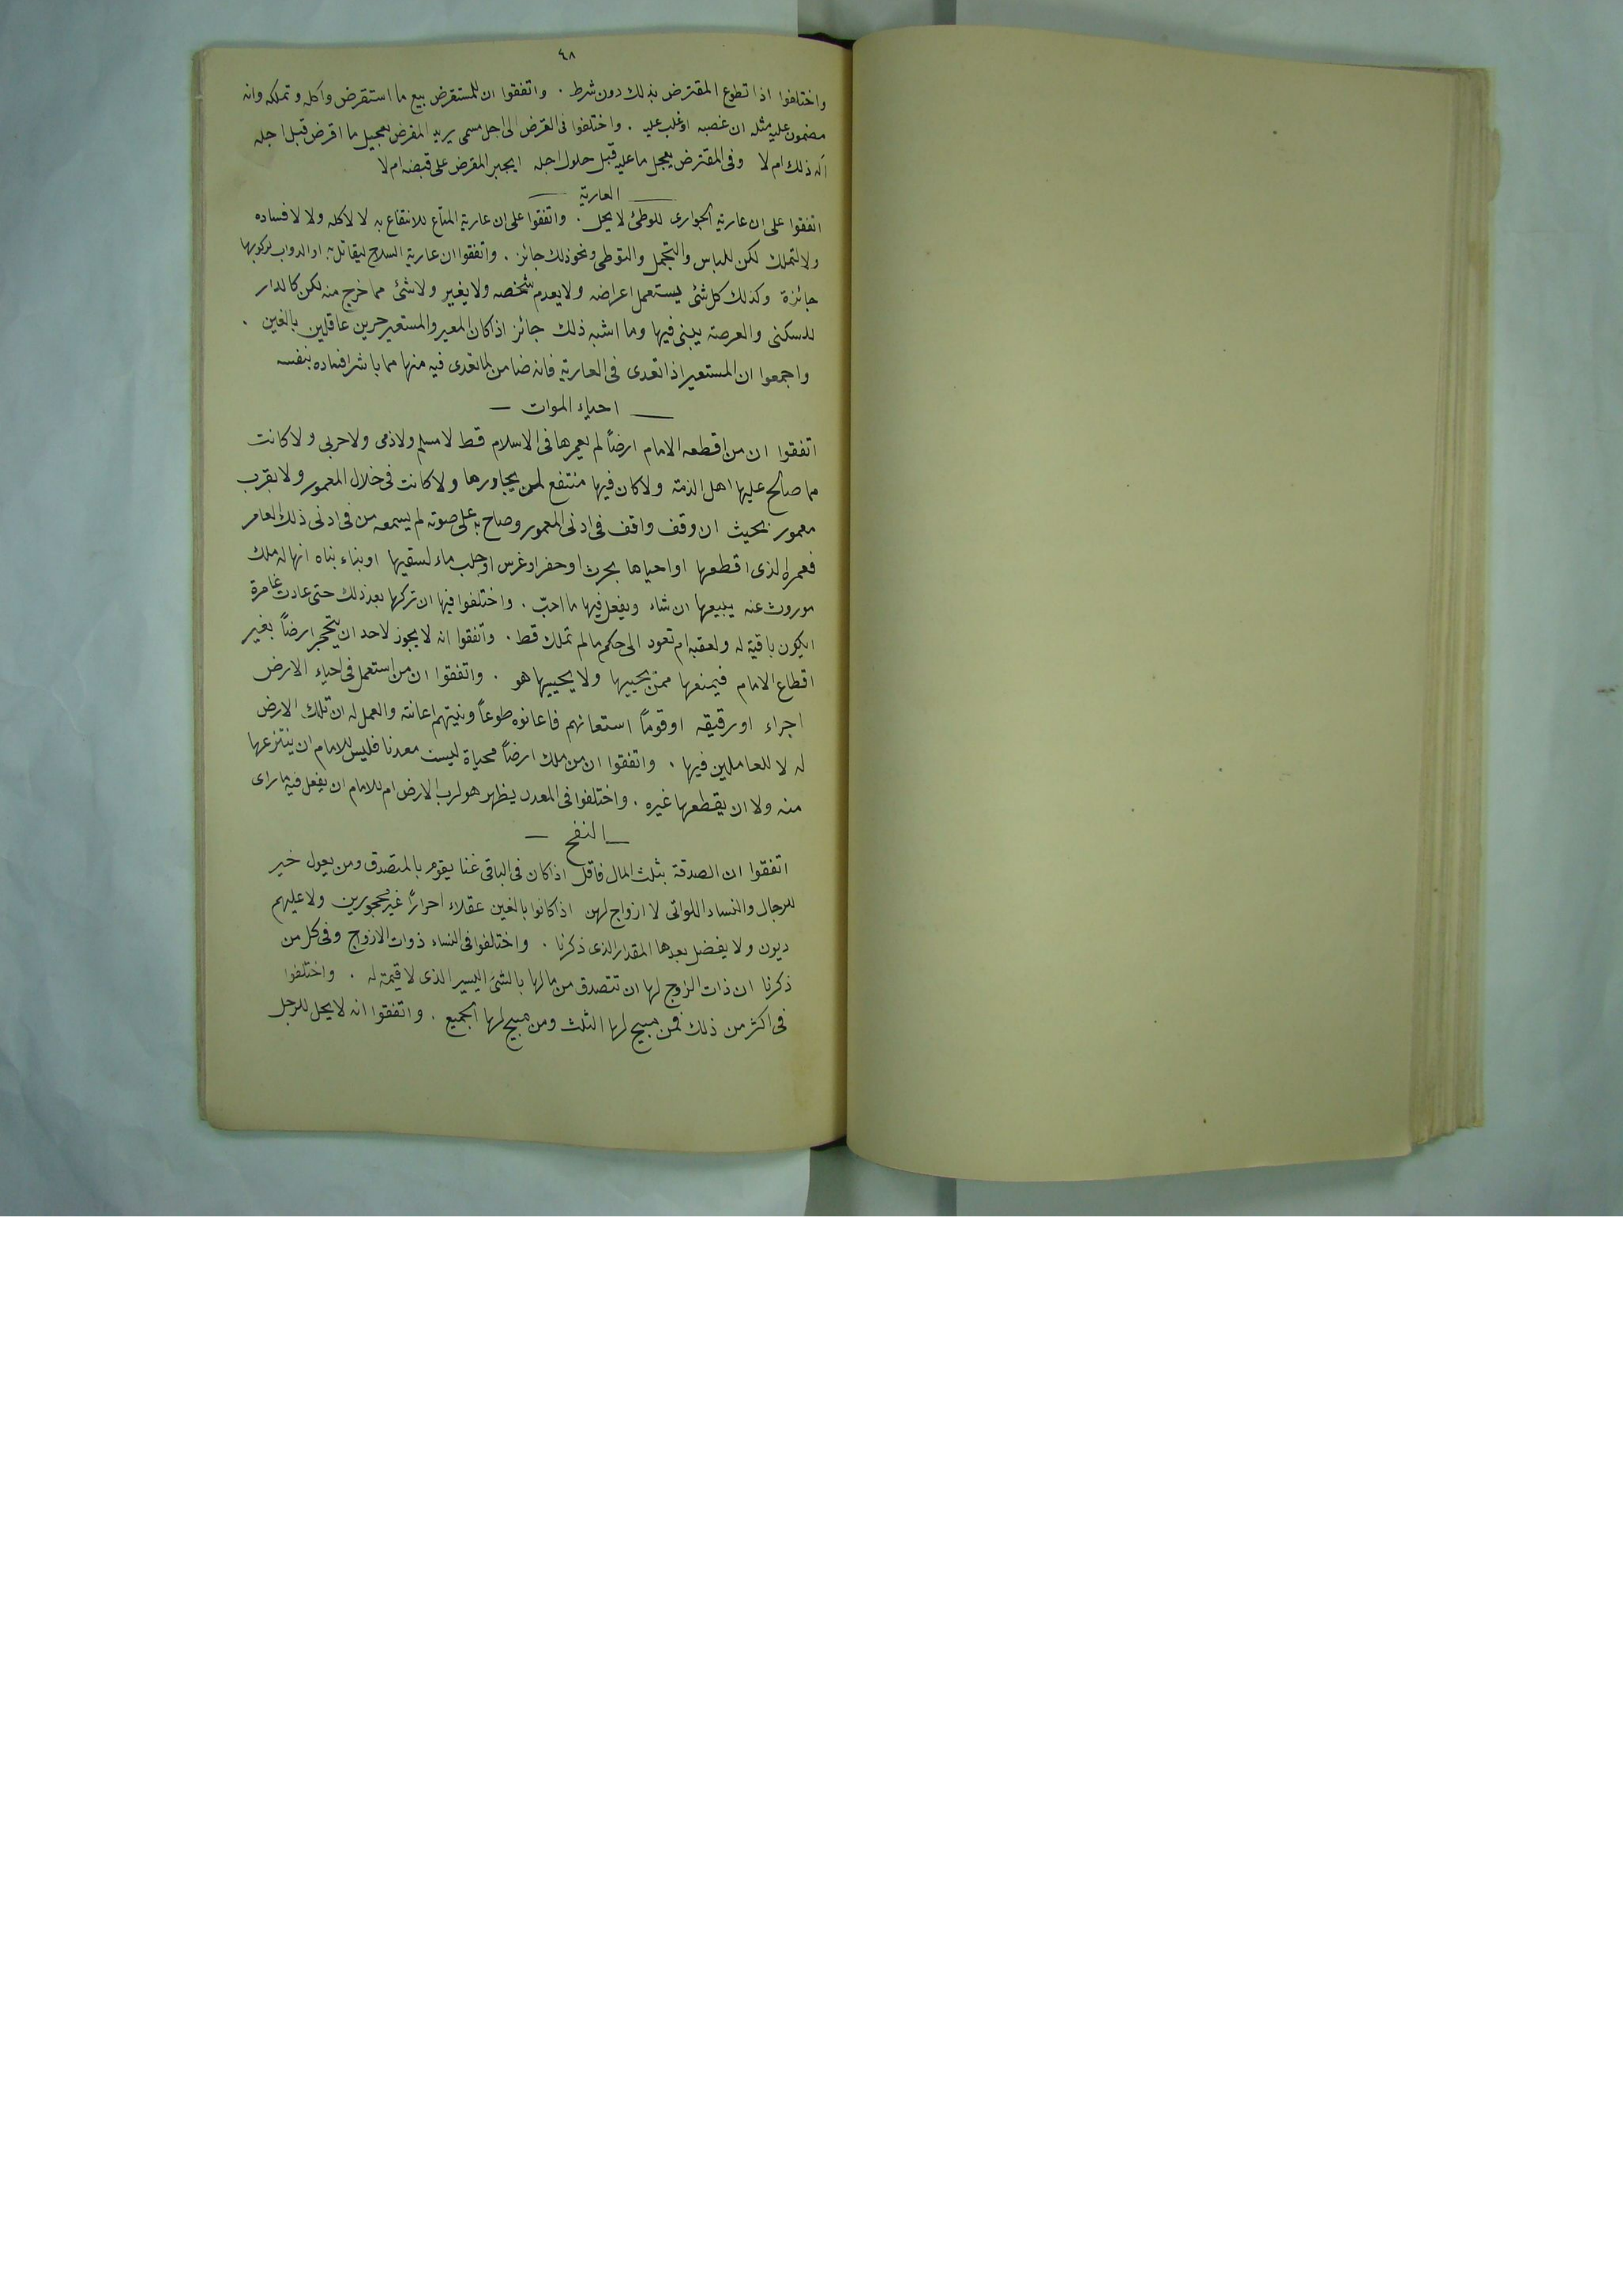 ٤٨
واختلفوا اذا تطوع المقترض بذلك دون شرط . واتفقوا ان للمستقرض بيع ما استقرض واكله وتملكه وانه
مضمون عليه مثله ان غصبه او غلب عليه . واختلفوا فى القرض الى اجل مسمى يريد المقرض تعجيل ما اقرض قبل اجله
أله ذلك ام لا وفى المقترض يعجل ما عليه قبل حلول اجله ايجبر المقرض على قبضه ام لا
— العارية —
اتفقوا على ان عارية الجوارى للوطئ لا يحل . واتفقوا على ان عارية المتاع للانتفاع به لا لاكله ولا لافساده
ولا لتملك لكن للباس والتجمل والتوطى ونحو ذلك جائز . واتفقوا ان عارية السلاح ليقاتل به او الدواب لركوبها
جائزة وكذلك كل شئ يستعمل اعراضه ولا يعدم شخصه ولا يغير ولا شئ مما خرج منه لكن كالدار
للسكنى والعرصة يبنى فيها وما اشبه ذلك جائز اذا كان المعير والمستعير حرين عاقلين بالغين .
واجمعوا ان المستعير اذا تعدى فى العارية فانه ضامن لما تعدى فيه منها مما باشر افساده بنفسه
— احياء الموات —
اتفقوا ان من اقطعه الامام ارضاً لم يعمرها فى الاسلام قط لا مسلم ولا ذمى ولا حربى ولا كانت
مما صالح عليها اهل الذمة ولا كان فيها منتفع لمن يجاورها ولا كانت فى خلال المعمور ولا بقرب
معمور بحيث ان وقف واقف فى ادنى المعمور وصاح باعلى صوته لم يسمعه من فى ادنى ذلك العامر
فعمره الذى اقطعها او احياها بحرث او حفر او غرس او جلب ماء لسقيها او بناء بناه انها له ملك
موروث عنه يبيعها ان شاء ويفعل فيها ما احبّ . واختلفوا فيها ان تركها بعد ذلك حتى عادت غامرة
ايكون باقية له ولعقبه ام تعود الى حكم ما لم تملك قط . واتفقوا انه لا يجوز لاحد ان يتحجر ارضاً بغير
اقطاع الامام فيمنعها ممن يحييها ولا يحييها هو . واتفقوا ان من استعمل فى احياء الارض
اجراء او رقيقه او قوماً استعانهم فاعانوه طوعاً ونيتهم اعانته والعمل له ان تلك الارض
له لا للعاملين فيها . واتفقوا ان من ملك ارضاً محياة ليست معدنا فليس للامام ان ينتزعها
منه ولا ان يقطعها غيره . واختلفوا فى المعدن يظهر هو لرب الارض ام للامام ان يفعل فيه ما راى
— النفح —
اتفقوا ان الصدقة بثلث المال فاقل اذا كان فى الباقى غنا يقوم بالمتصدق ومن يعول خير
للرجال والنساء اللواتى لا ازواج لهن اذا كانوا بالغين عقلاء احراراً غير محجورين ولا عليهم
ديون ولا يفضل بعدها المقدار الذى ذكرنا . واختلفوا فى النساء ذوات الازوج وفى كل من
ذكرنا ان ذات الزوج لها ان تتصدق من مالها بالشئ اليسير الذى لا قيمة له . واختلفوا
فى اكثر من ذلك فمن مبيح لها الثلث ومن مبيح لها الجميع . واتفقوا انه لا يحل للرجل